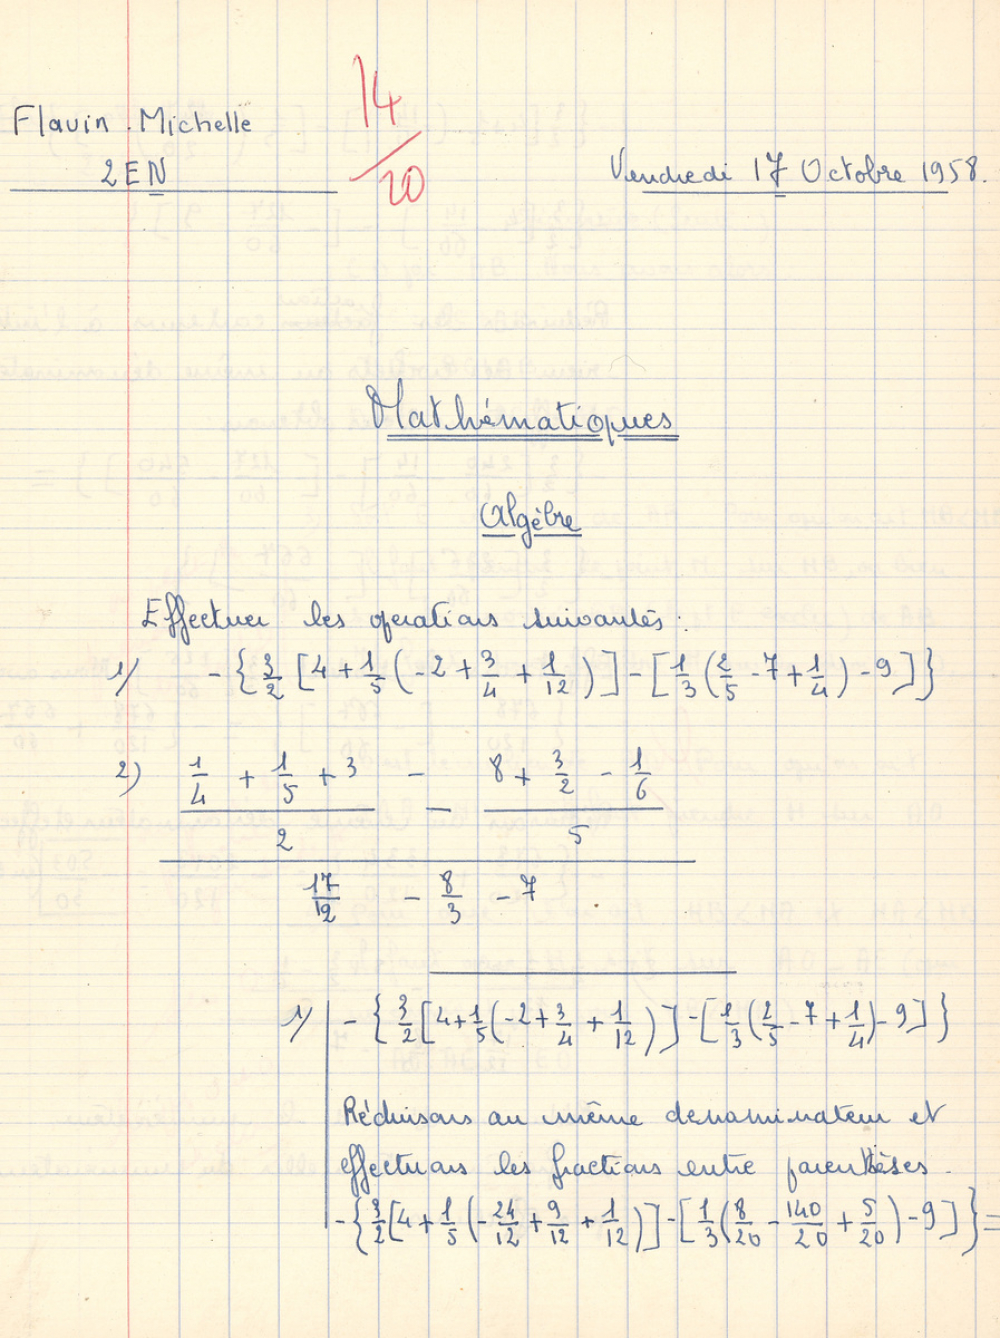 14
/20
Flavin Michelle
2EN
Vendredi 17 Octobre 1958.
Mathématiques
Algèbre
Effectuer les operations suivantes :
1/ - { 3/2 [ 4 + 1/5 ( -2 + 3/4 + 1/12 ) ] - [ 1/3 ( 2/5 - 7 + 1/4 ) - 9 ] }
2) 1/4 + 1/5 + 3 - 8 + 3/2 - 1/6
2 - 5
17/12 - 8/3 - 7
1/ - { 3/2 [ 4 + 1/5 ( -2 + 3/4 + 1/12 ) ] - [ 1/3 ( 2/5 - 7 + 1/4 ) - 9 ] }
Réduisons au même denominateur et
effectuons les fractions entre parenthèses.
- { 3/2 [ 4 + 1/5 ( - 24/12 + 9/12 + 1/12 ) ] - [ 1/3 ( 8/20 - 140/20 + 5/20 ) - 9 ] } =